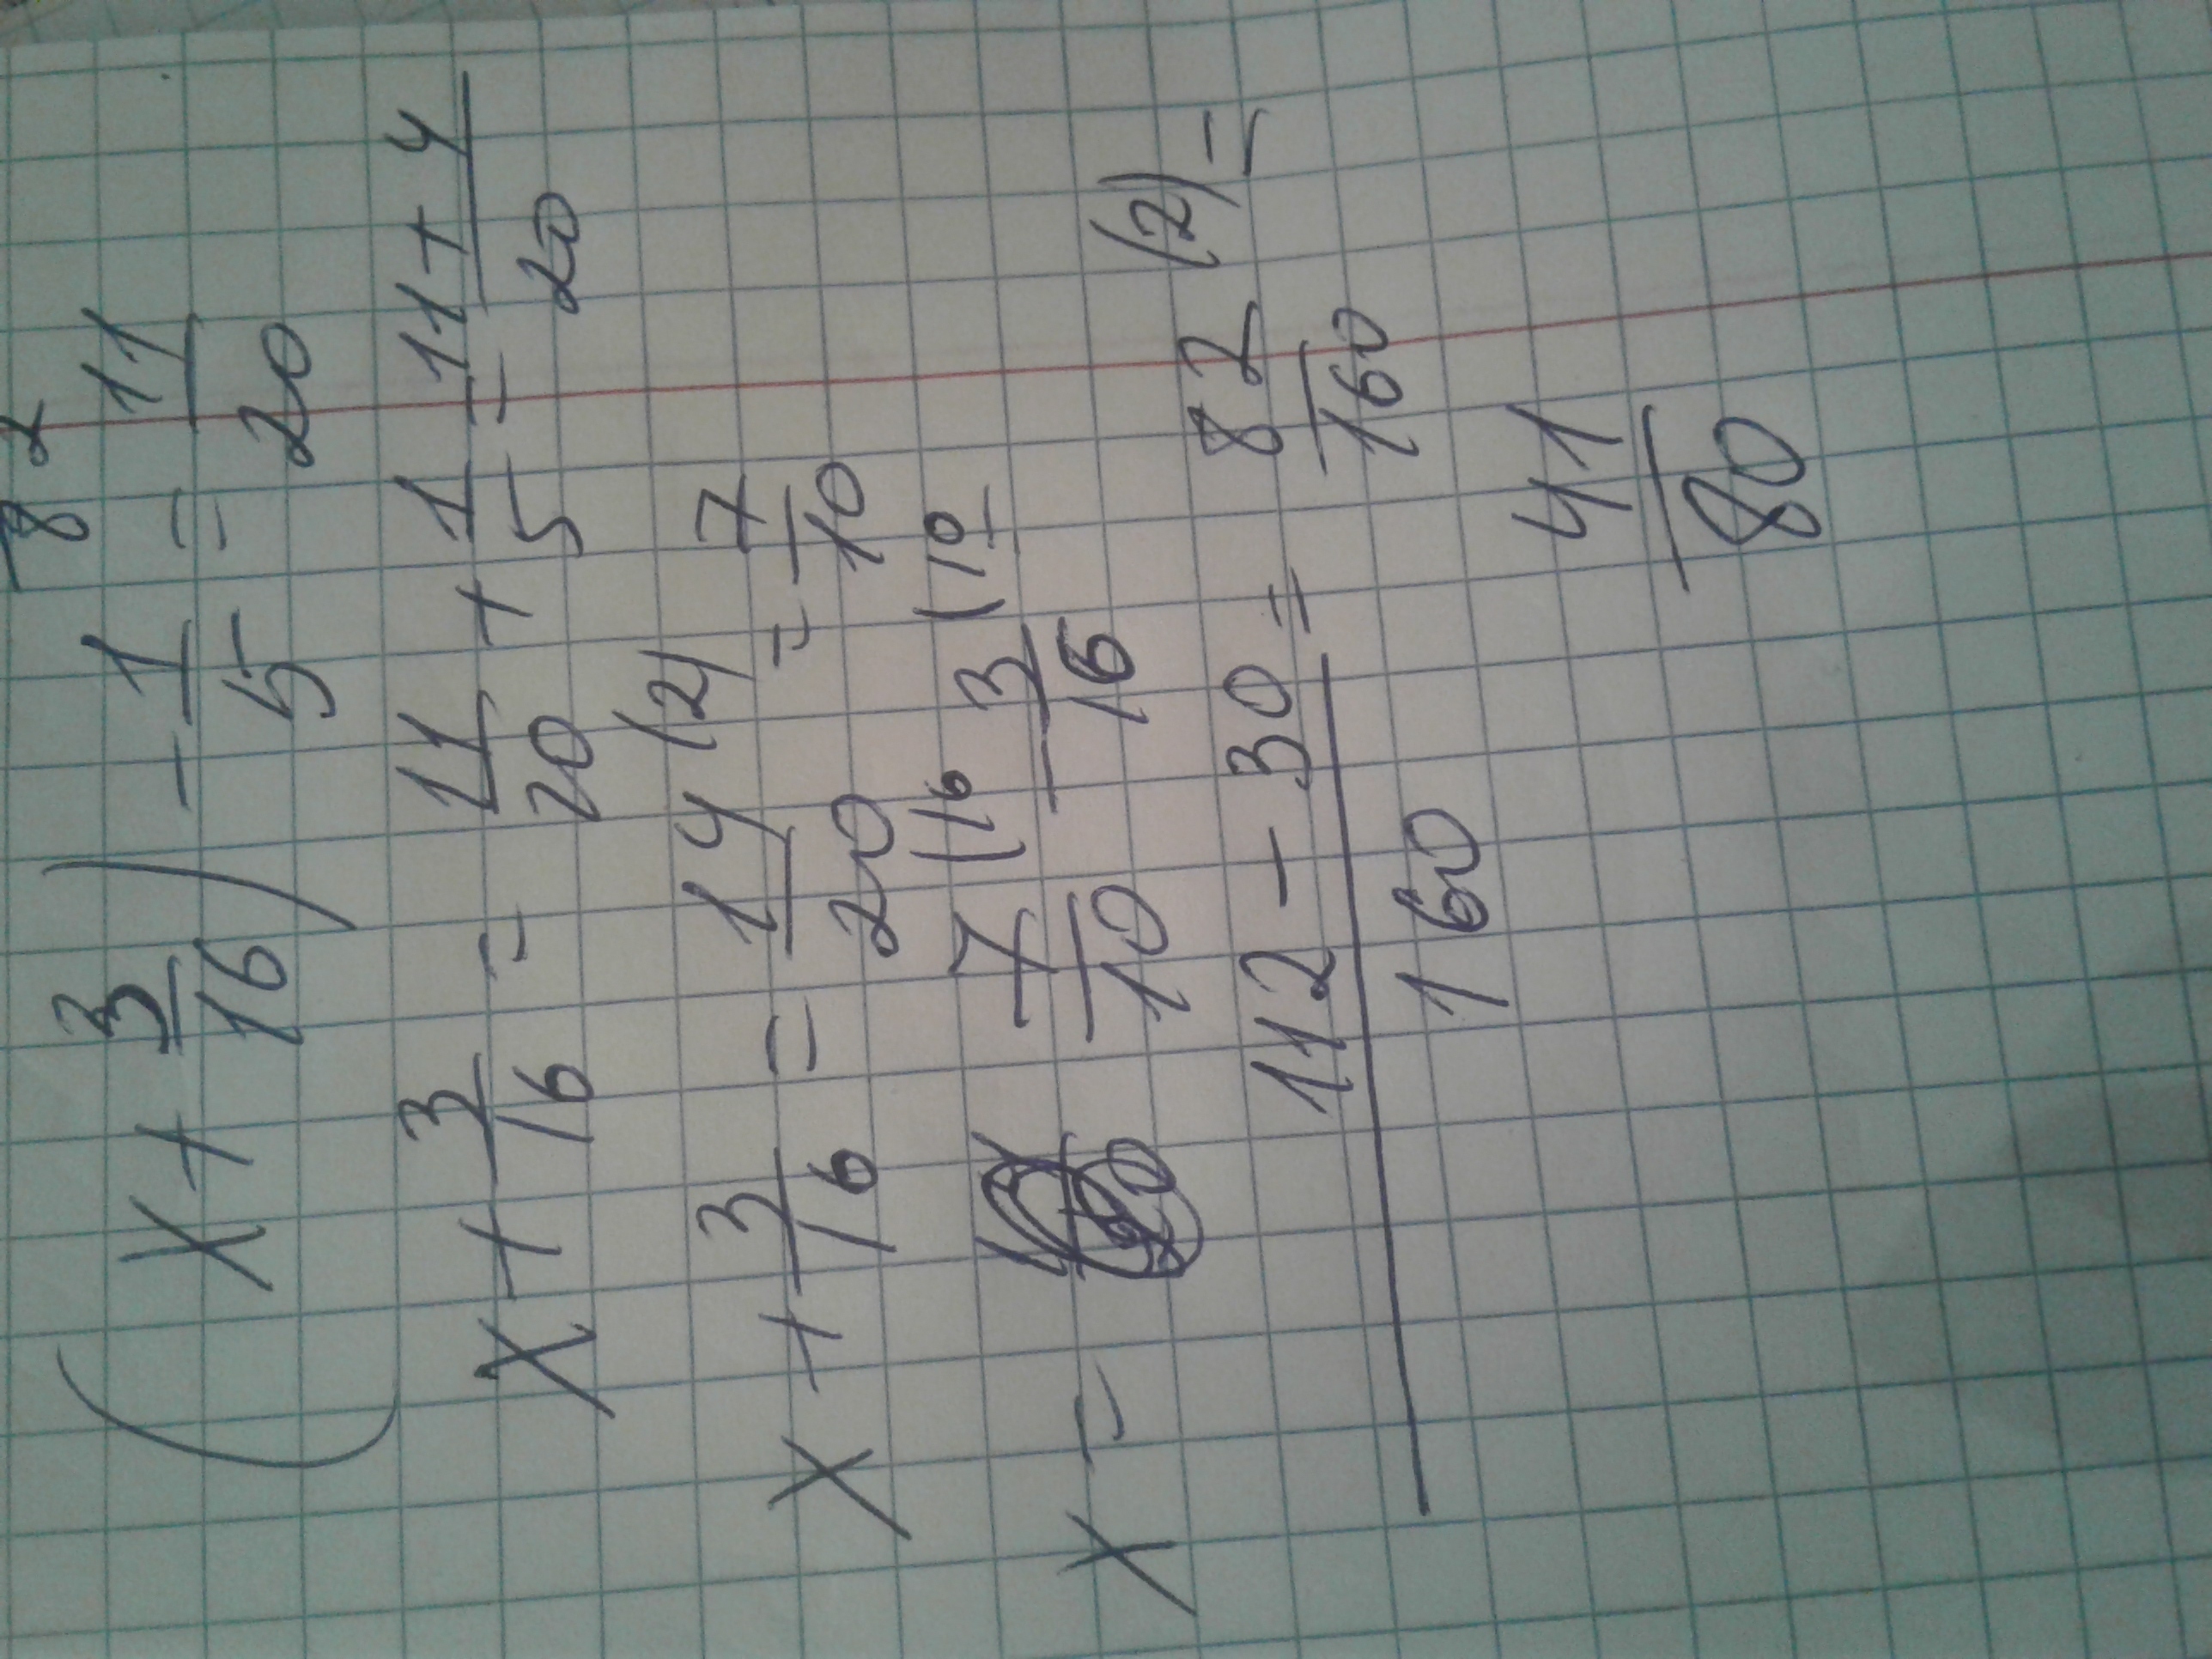 8 2
(x + 3/16) - 1/5 = 11/20
x + 3/16 = 11/20 + 1/5 = 11+4/20
x + 3/16 = 14/20 (2) = 7/10
x = 7/10 (16 - 3/16 (10 =
112 - 30/160 = 82/160 (2) =
41/80